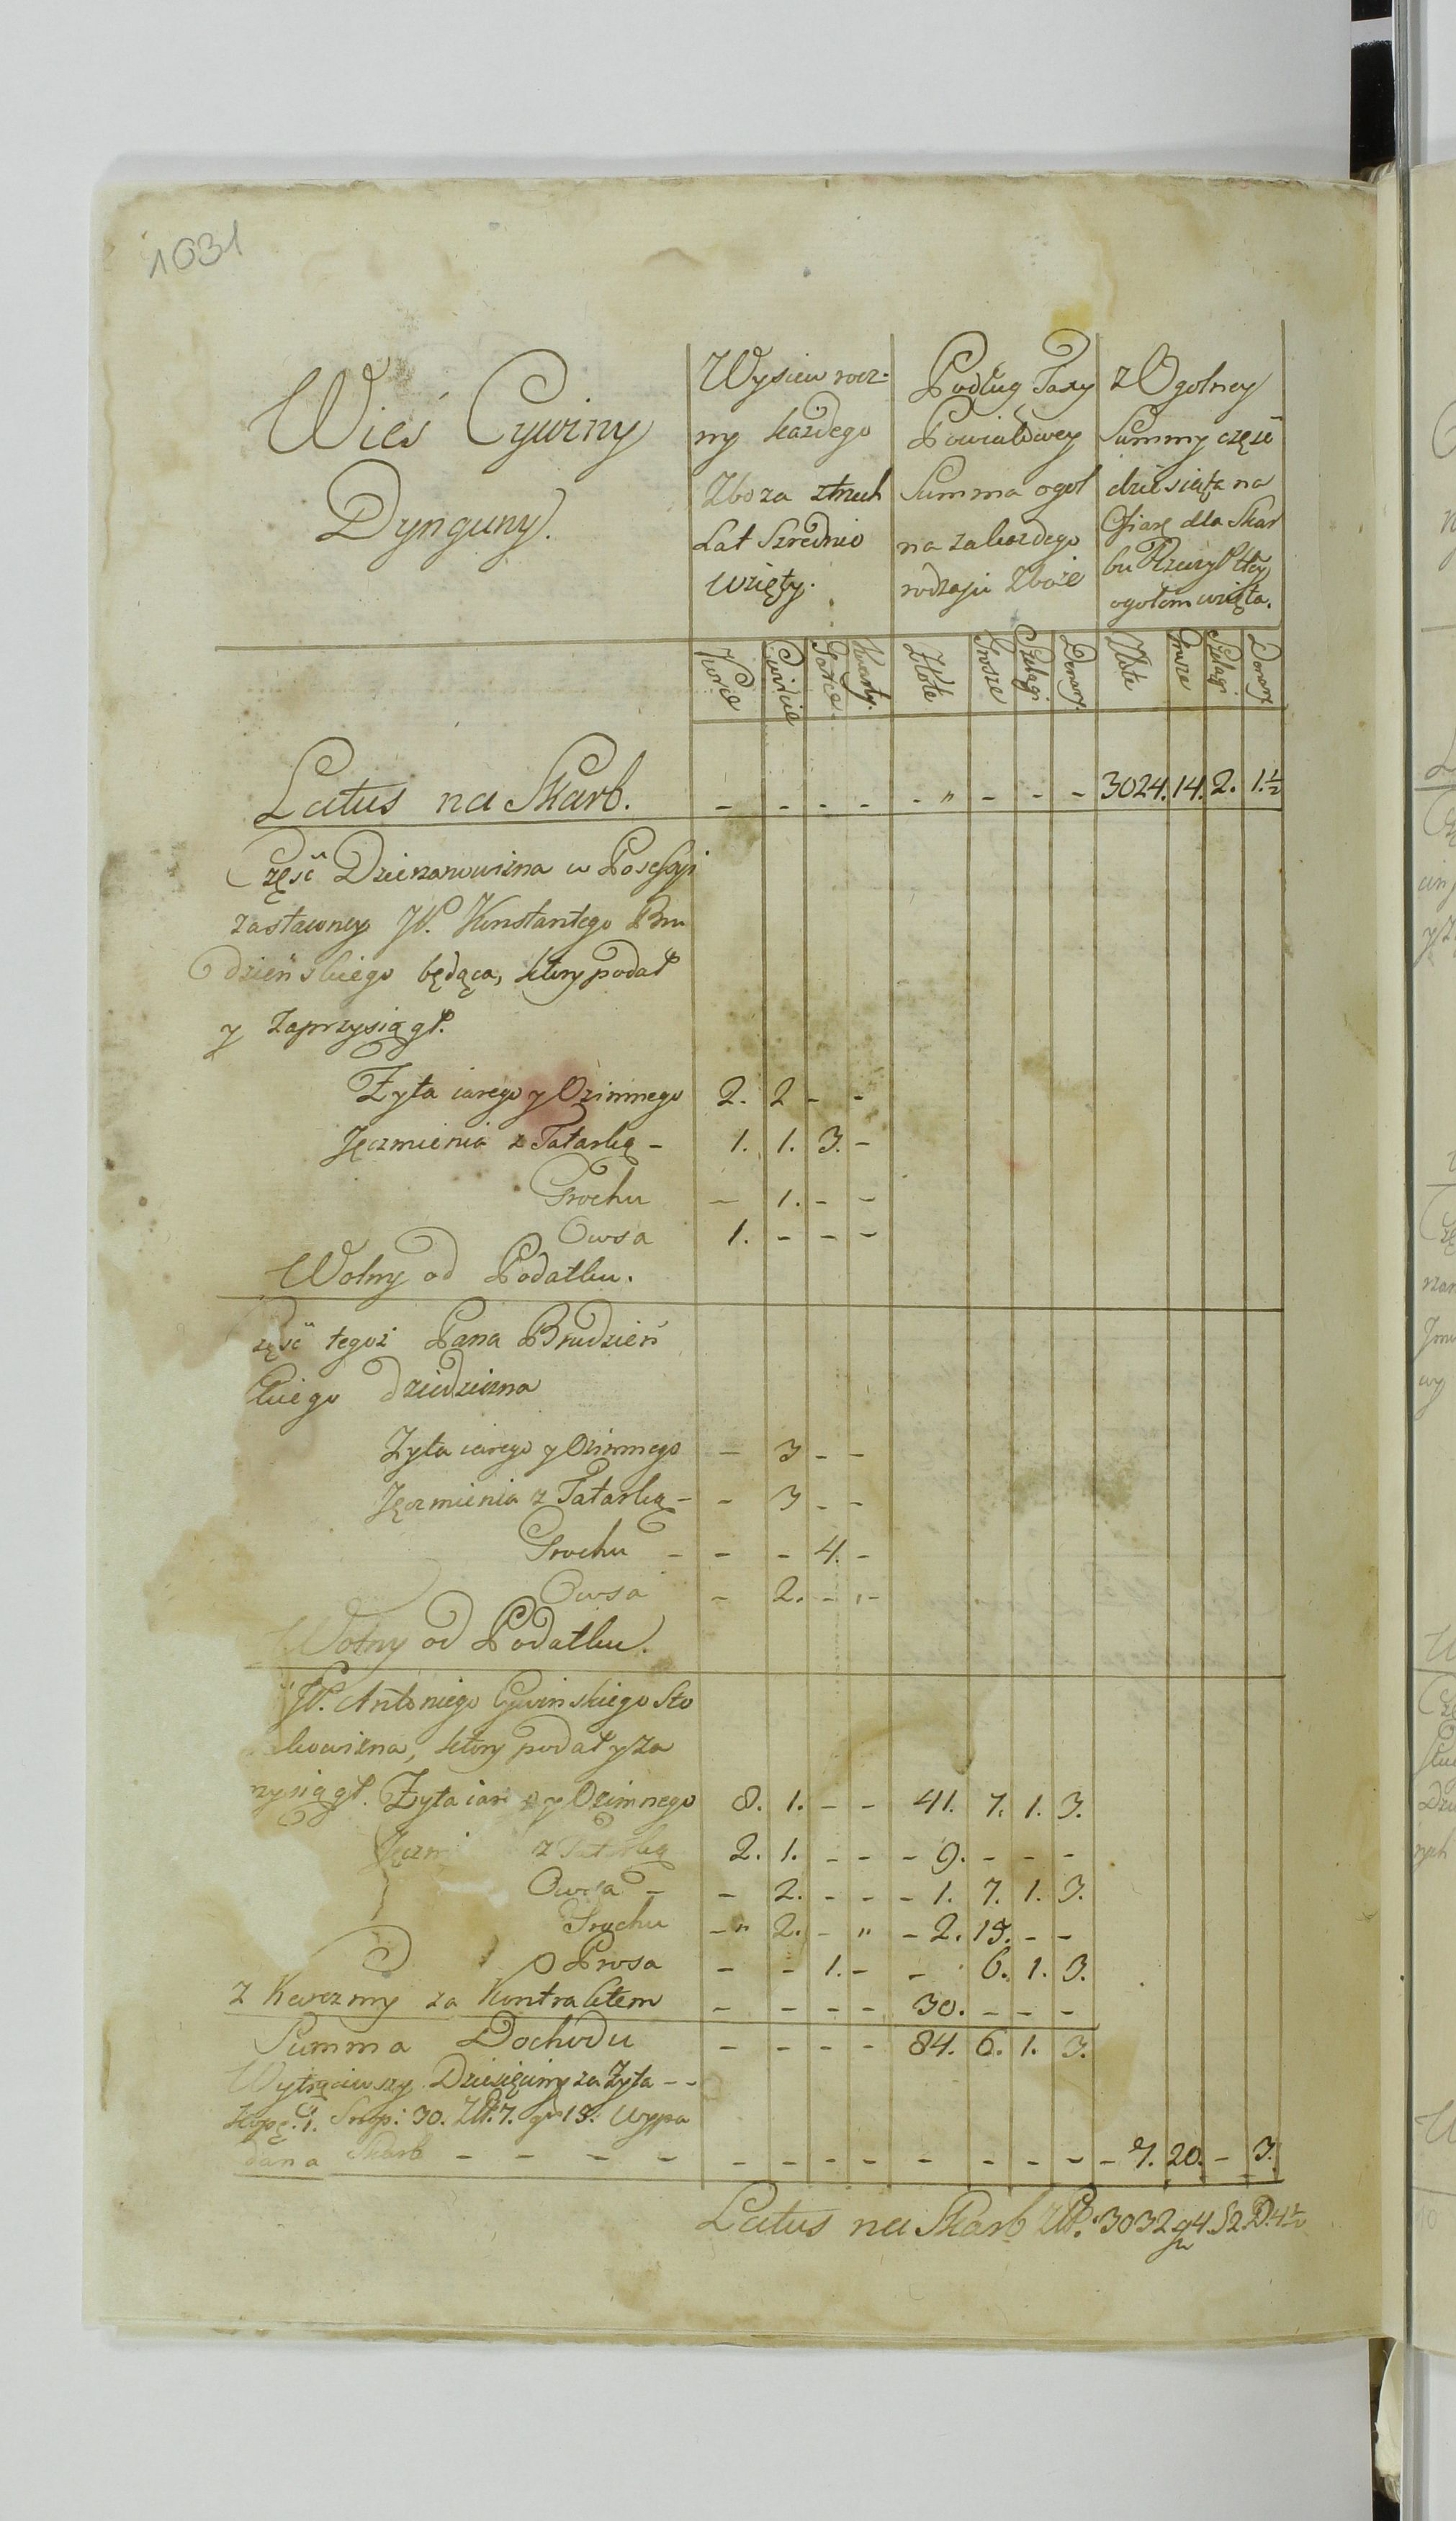 1031
Wieś Cywiny
Dynguny.
Wysiew rocz=
ny każdego
Zboza ztrzech
Lat Szrednio
wzięty.
Podług Taxy
Powiatowey
Summa ogol
na zakazdego
rodzaju Zboże
z Ogolney
Summy część
dziesiąta na
Ofiarę dla Skar
bu Rzeczy Pltey
ogołem wzięta.
Korce Cwierci Garce Kwarty. Złote Grosze Szelągi Denary. Złote Grosze Szelągi Denary
Latus na Skarb. - - - - - " - - - 3024. 14. 2. 1.½
Część Dzierzawizna w Posessyi
zastawney JP. Konstantego Bru
dzieńskiego będąca, ktory podał
y zaprzysiągł.
Zyta iarego y Ozimnego 2. 2 - -
Jęczmienia z Tatarką - 1. 1. 3. -
Grochu - 1. - -
Owsa 1. - - -
Wolny od Podatku.
zęść tegoż Pana Brudzień
skiego dziedziczna
Zyta iarego y Ozimnego - 3 - -
Jęczmienia z Tatarką - - 3 - -
Grochu - - - 4. -
Owsa - 2. - -
Wolny od Podatku.
JP. Antoniego Cywińskiego Sto
kowizna, ktory podał y za
rzysiągł. Zyta iar o y Ozimnego 8. 1. - - 41. 7. 1. 3.
Jęczm z Tatarką 2. 1. - - - 9. - - -
Owsa - - 2. - - - 1. 7. 1. 3.
Grochu - " 2. - " - 2. 15. - -
Prosa - - 1. - - 6. 1. 3.
z Karczmy za Kontraktem - - - - 30. - - -
Summa Dochodu - - - - 84. 6. 1. 3.
Wytrąciwszy Dziesięciny za Zyta - -
Kopę. 1. Snop: 30. Złł. 7. gr 15. Wypa
da na Skarb - - - - - - - - - - - - - 7. 20. - 3.
Latus na Skarb Złł. 3032 gr 4. S 2. D. 4½